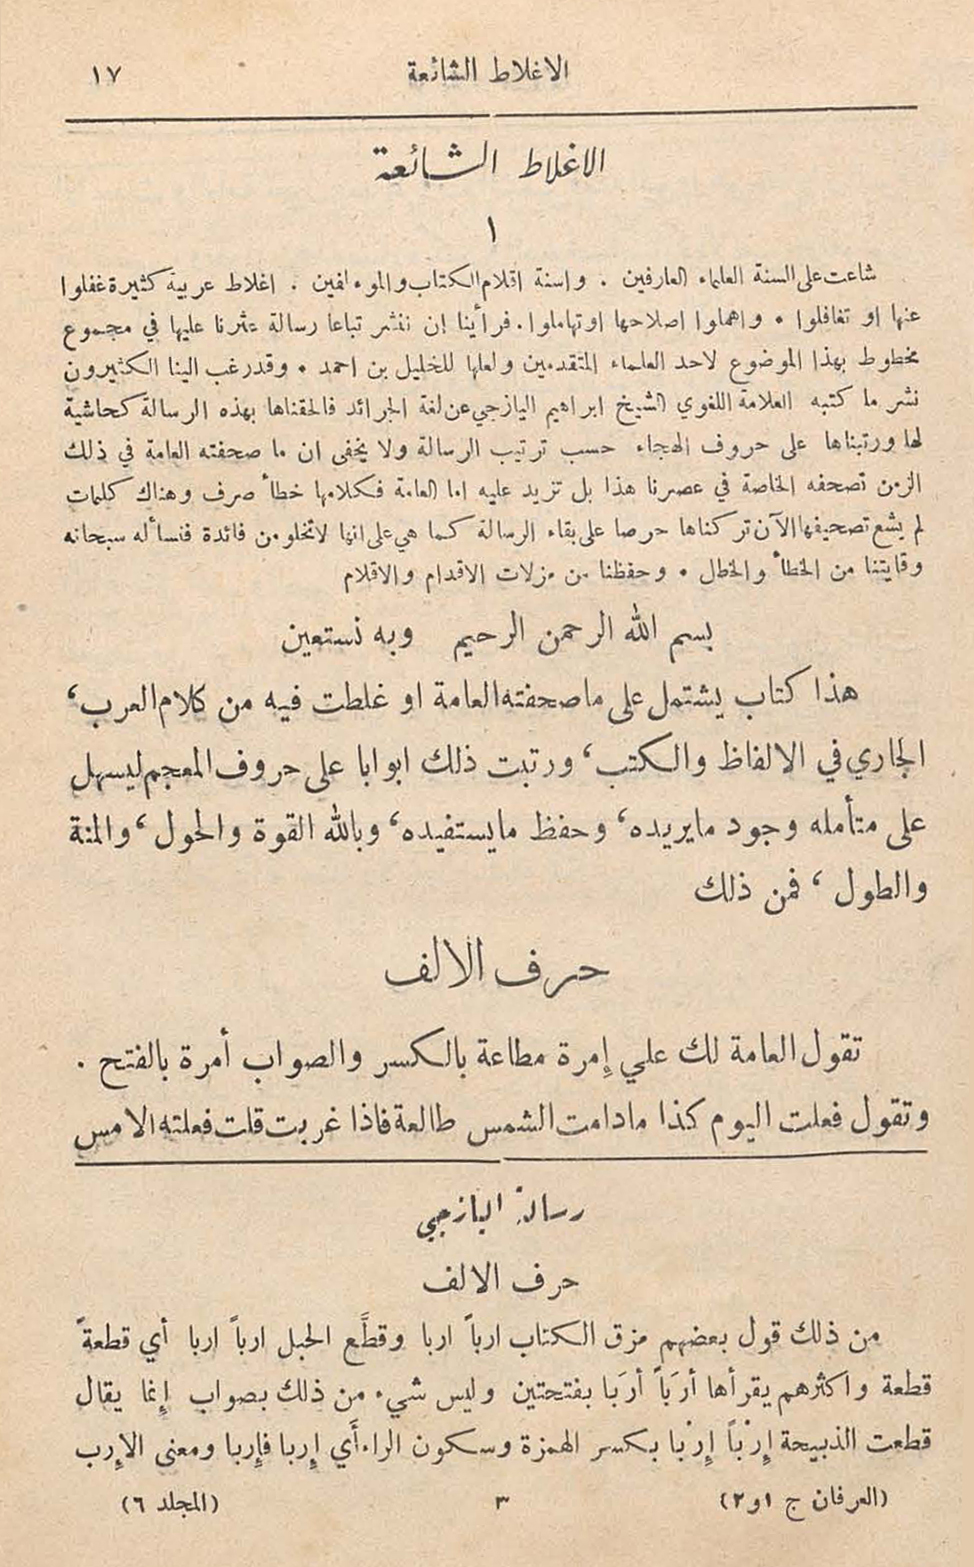 الاغلاط الشائعة ١٧
الاغلاط الشائعة
١
شاعت على السنة العلماء العارفين . واسنة اقلام الكتاب والموءلفين . اغلاط عربية كثيرة غفلوا
عنها او تغافلوا . واهملوا اصلاحها او تهاملوا . فرأينا ان ننشر تباعا رسالة عثرنا عليها في مجموع
مخطوط بهذا الموضوع لاحد العلماء المتقدمين ولعلها للخليل بن احمد . وقد رغب الينا الكثيرون
نشر ما كتبه العلامة اللغوي الشيخ ابراهيم اليازجي عن لغة الجرائد فالحقناها بهذه الرسالة كحاشية
لها ورتبناها على حروف الهجاء حسب ترتيب الرسالة ولا يخفى ان ما صحفته العامة في ذلك
الزمن تصحفه الخاصة في عصرنا هذا بل تزيد عليه اما العامة فكلامها خطأ صرف وهناك كلمات
لم يشع تصحيفها الآن تركناها حرصا على بقاء الرسالة كما هي على انها لا تخلو من فائدة فنسأله سبحانه
وقايتنا من الخطأ والخطل . وحفظنا من مزلات الاقدام والاقلام
بسم الله الرحمن الرحيم وبه نستعين
هذا كتاب يشتمل على ما صحفته العامة او غلطت فيه من كلام العرب ،
الجاري في الالفاظ والكتب ، ورتبت ذلك ابوابا على حروف المعجم ليسهل
على متأمله وجود ما يريده ، وحفظ ما يستفيده ، وبالله القوة والحول ، والمنة
والطول ، فمن ذلك
حرف الالف
تقول العامة لك علي إمرة مطاعة بالكسر والصواب أمرة بالفتح .
وتقول فعلت اليوم كذا ما دامت الشمس طالعة فاذا غربت قلت فعلته الامس
رسالة اليازجي
حرف الالف
من ذلك قول بعضهم مزق الكتاب ارباً اربا وقطَّع الحبل ارباً اربا أي قطعةً
قطعة واكثرهم يقرأها أرَباً أرَبا بفتحتين وليس شيء من ذلك بصواب إنما يقال
قطعت الذبيحة إِرْباً إِرْبا بكسر الهمزة وسكون الراء أَي إِربا فإِربا ومعنى الإِرب
(العرفان ج ١و٢) ٣ (المجلد ٦)